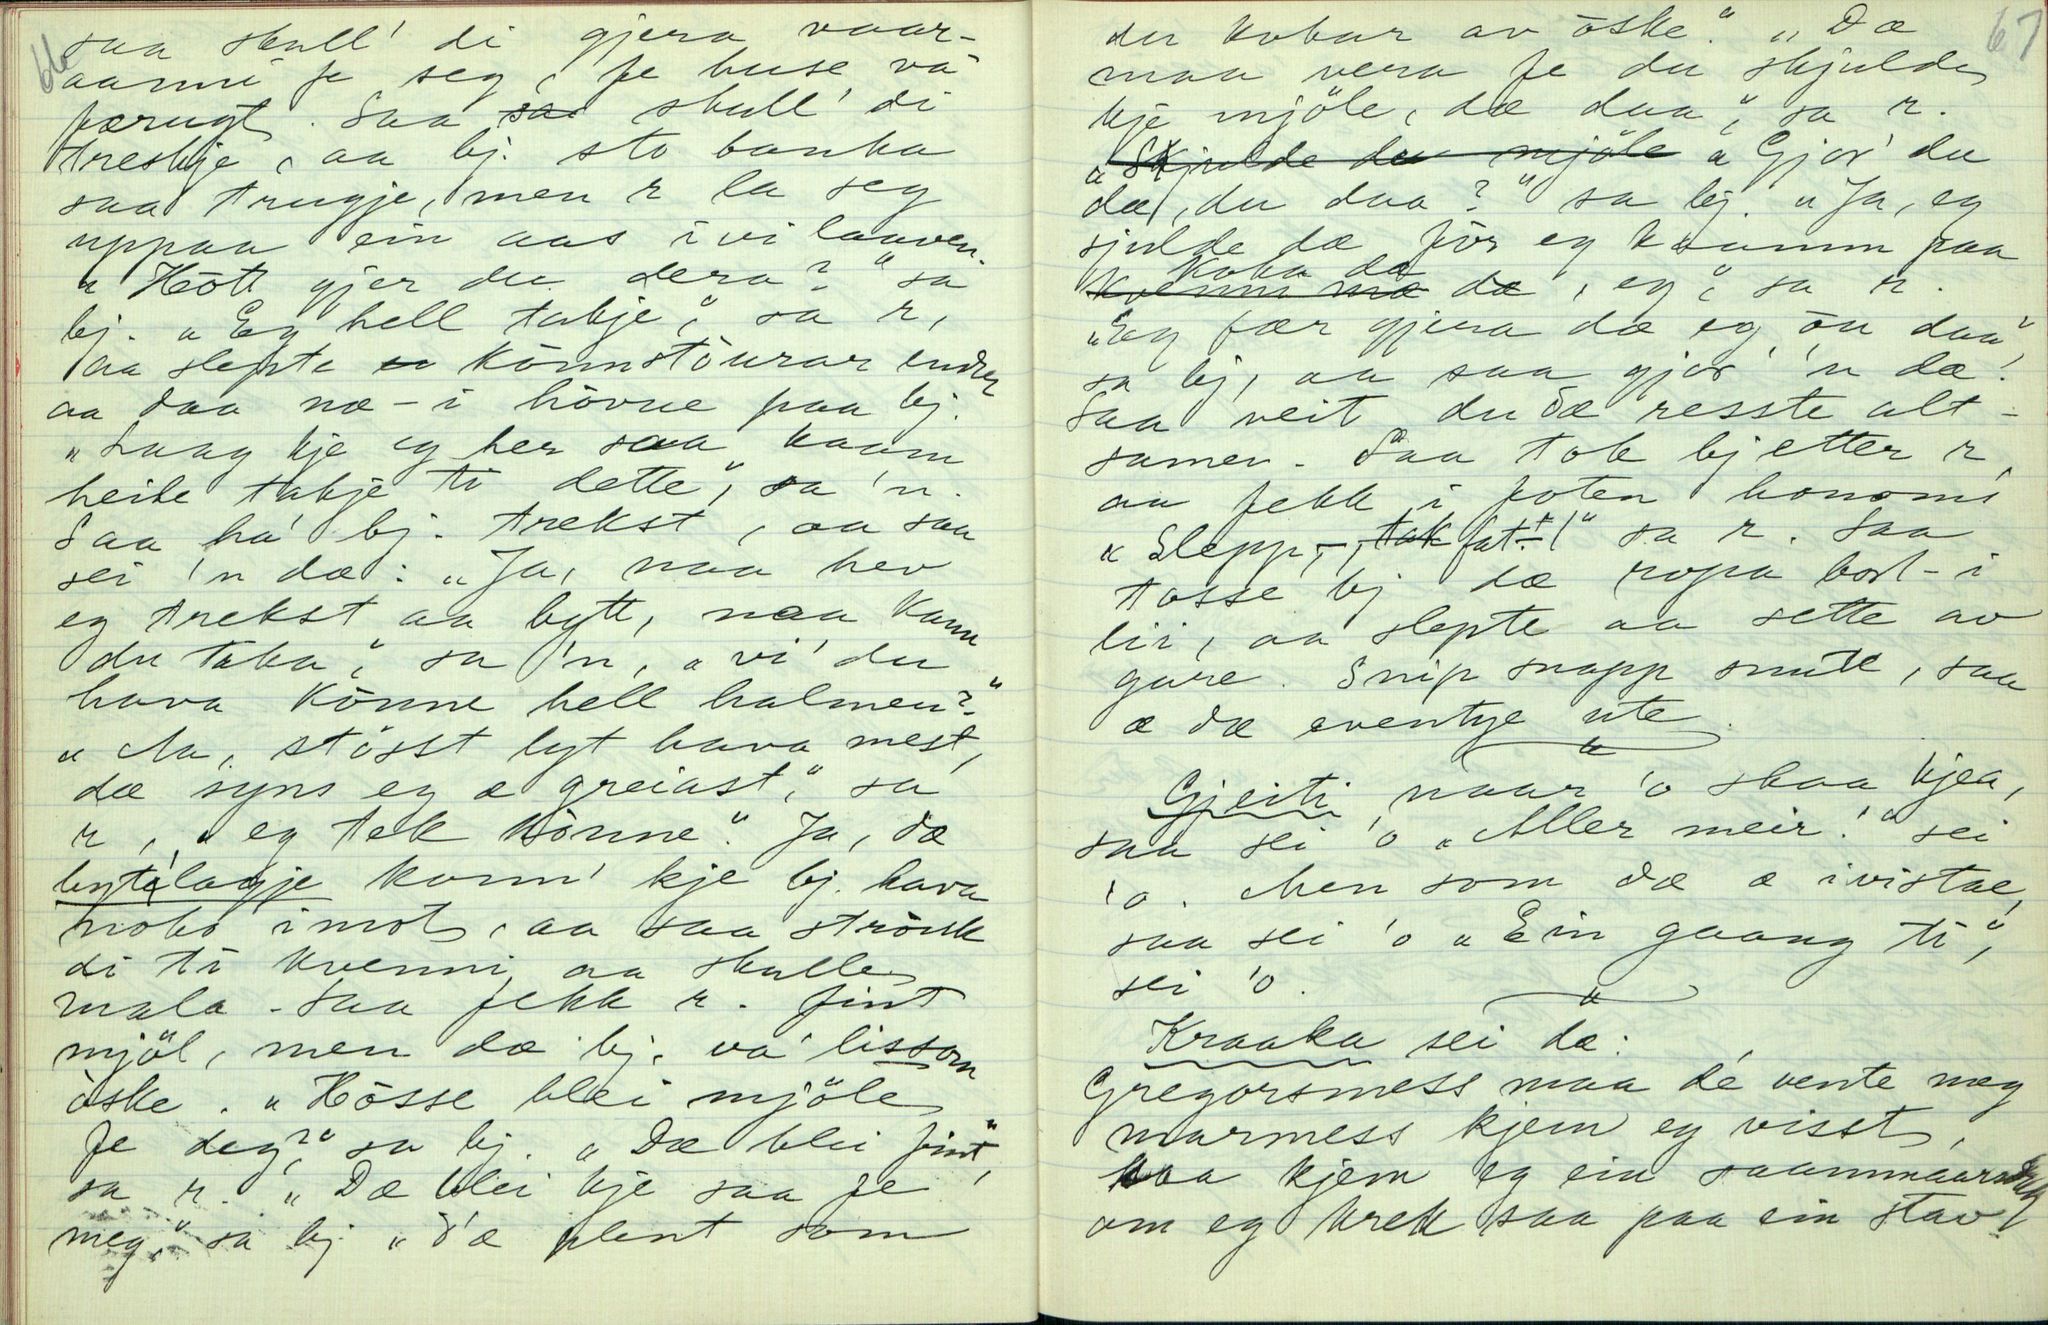 66
saa skull' di gjera vaar-
aanni fe seg, fe huse va
færugt. Saa sa skull' di
treskje, aa bj. sto banka
saa trugje, men r la seg
uppaa ein aas ivi laaven.
"Hött gjer du dera?" sa
bj. "Eg hell takje," sa r,
aa slepte ei könnstöurar endren
aa daa næ-i hövue paa bj.
"Laag kje eg her saa kaam
heile takje ti dette", sa 'n.
Saa ha' bj. trekst, aa saa
sei 'n dæ: "Ja, naa hev
eg trekst aa bytt, naa kann
du taka," sa 'n, "vi' du
hava könne hell halmen?"
"Aa, stösst lyt hava mest,
dæ syns eg æ greiast," sa
r, "eg tek könne." Ja, dæ
bytelagje kunn' kje bj. hava
noko imot, aa saa strouk
di ti kvenni aa skulle
mala. Saa fekk r. fint
mjöl, men dæ bj. va' lissom
öske. "Hösse blei mjöle
fe deg?" sa bj. "Dæ blei fint",
sa r. "Dæ blei kje saa fe
meg," sa bj "d'æ plent som
67
du kokar av öske." "Dæ
maa vera fe du skjulde
kje mjöle, dæ daa," sa r.
"Skjulde du mjöle "Gjor' du
dæ, du daa?" sa bj. "Ja, eg
sjulde dæ för eg kaamm paa
koka dæ
kvenni mæ dæ, eg," sa r.
"Eg fær gjera dæ eg öu daa"
sa bj, aa saa gjor' 'n dæ.
Saa veit du dæ resste alt-
samen. Saa tok bj etter r,
aa fekk i foten honoms
"Slepp, -, tak fat!" sa r. Saa
tosse bj dæ ropa bort-i
lii, aa slepte aa sette av
gare. Snip snapp snute, saa
æ dæ eventye ute.
Gjeiti naar 'o skaa kjea,
saa sei 'o "Aller meir!" sei
'o. Men som dæ æ ivistæ,
saa sei 'o "Ein gaang ti",
sei 'o.
Kraaka sei dæ:
Gregorsmess maa de vente meg
marmess kjem eg visst,
kjem eg ein saammaarsdag
om eg krek saa paa ein stav